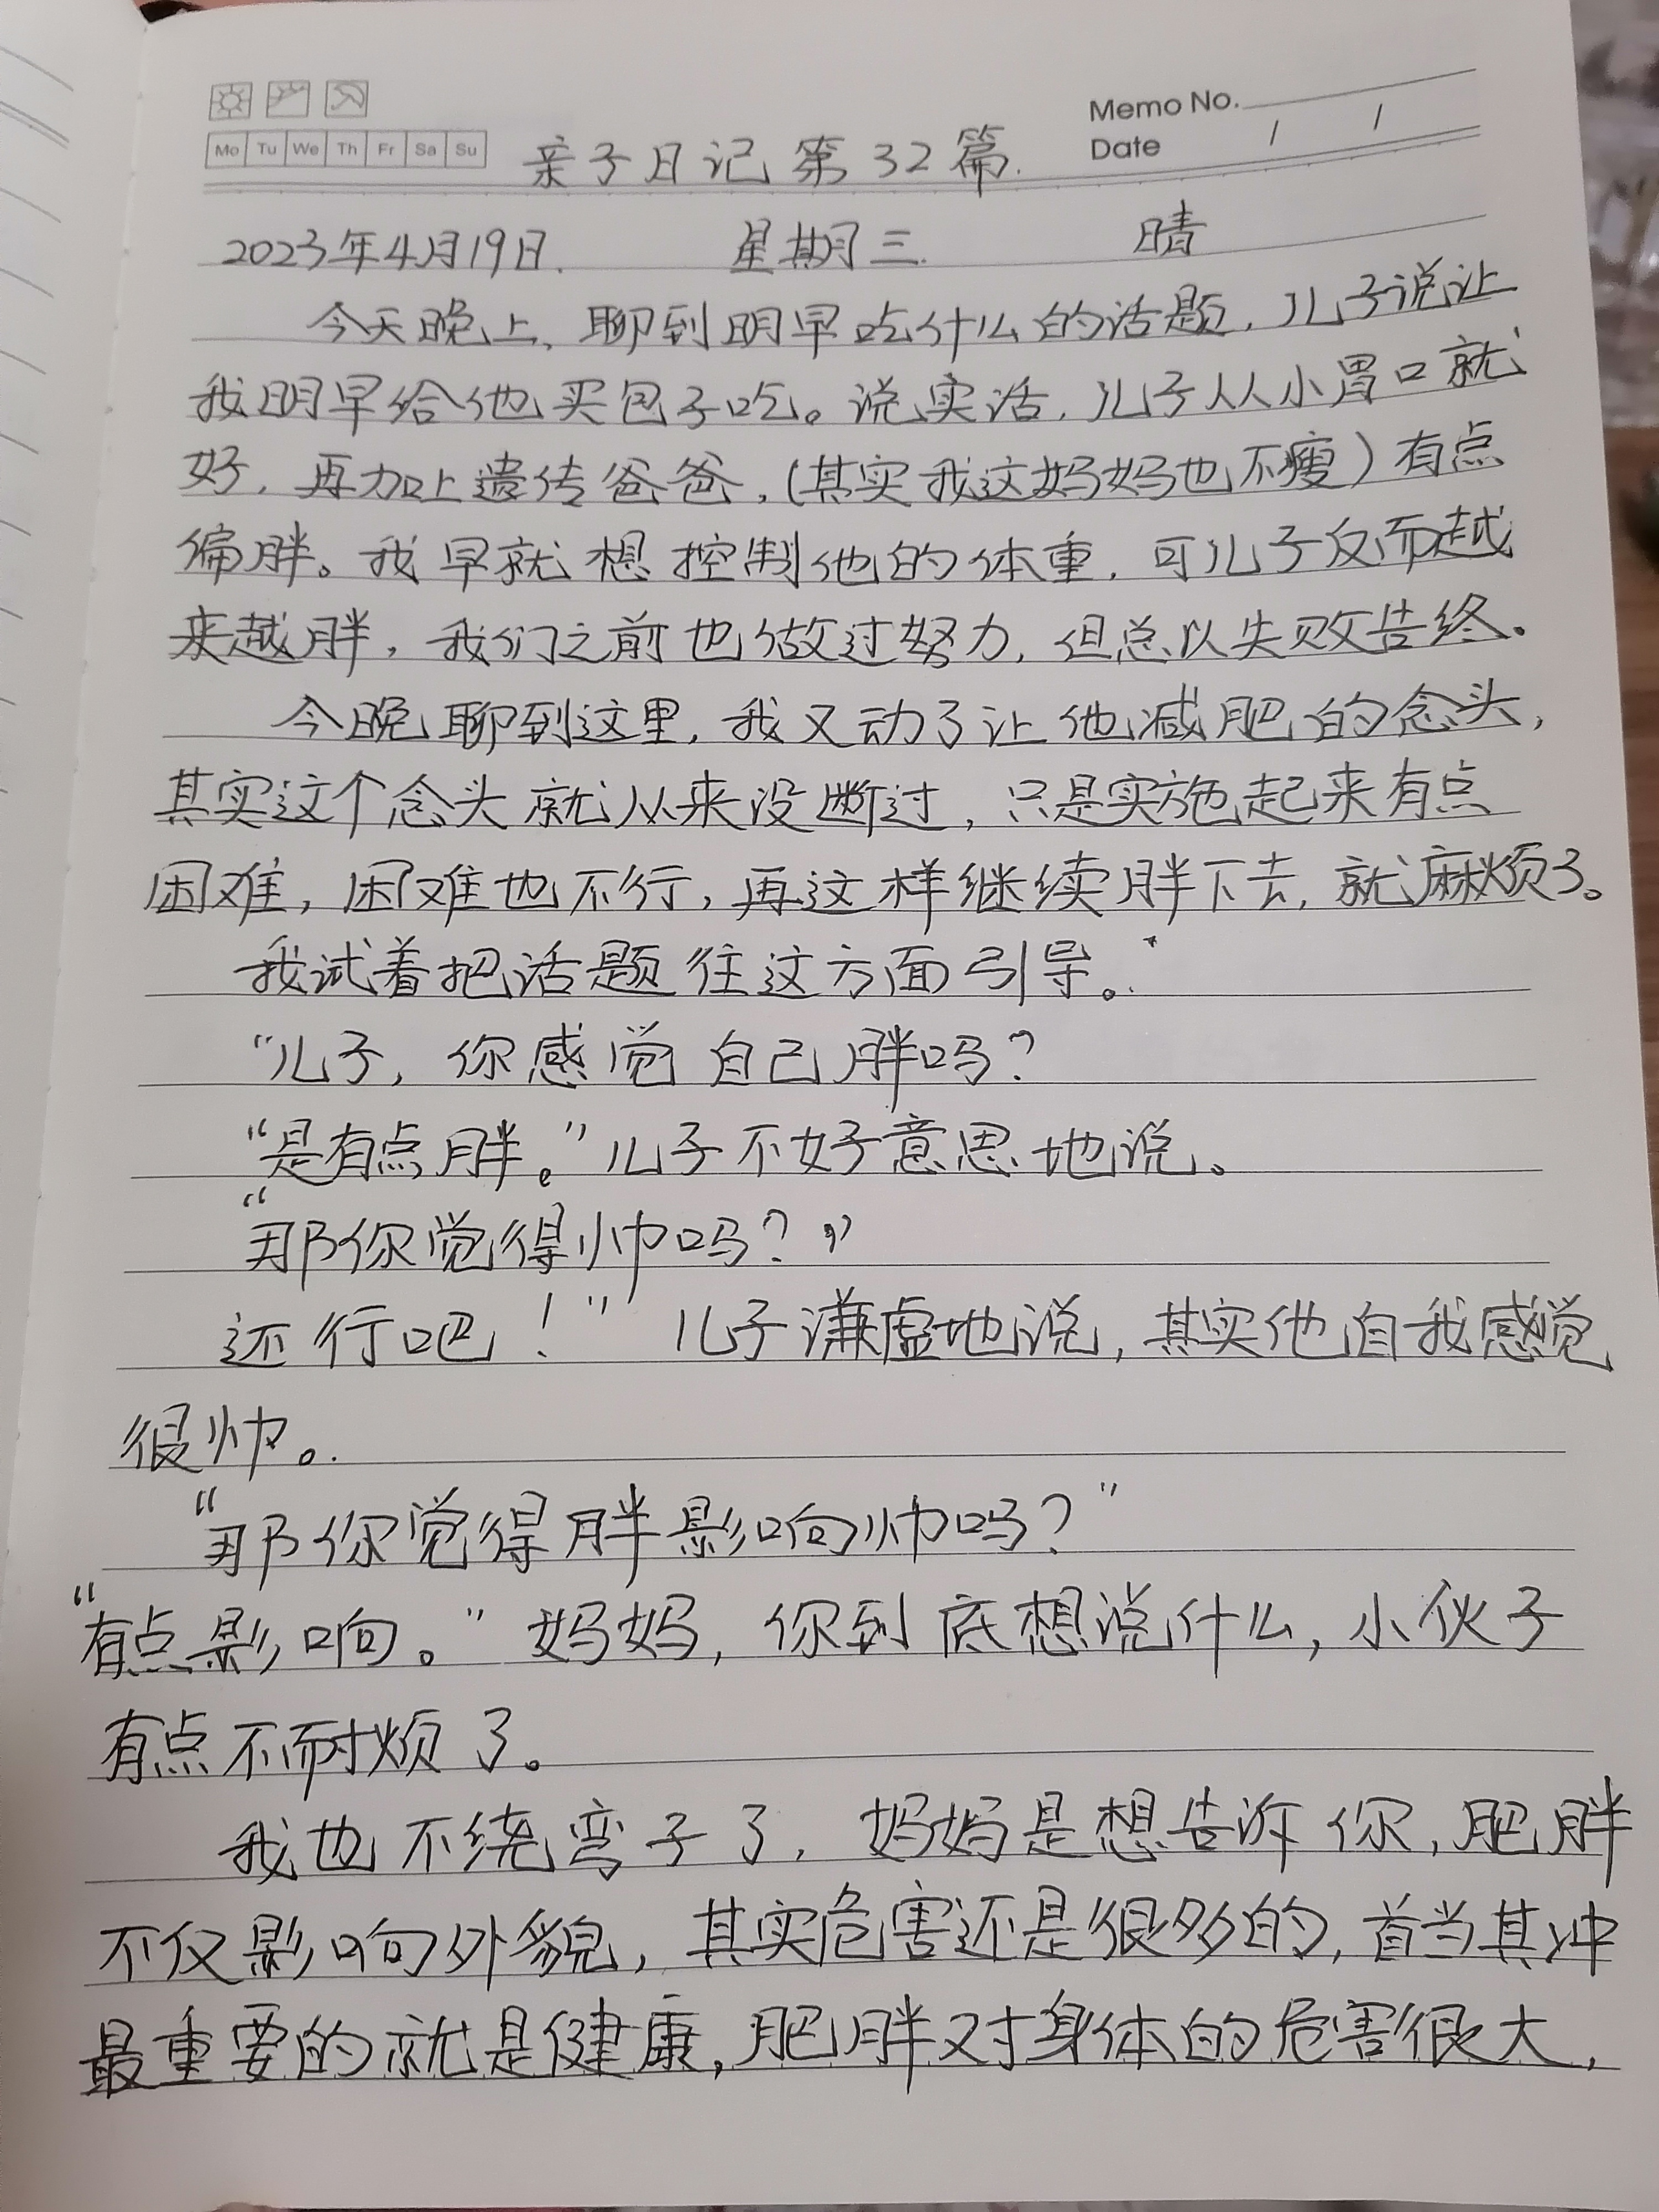 Memo No.
Mo Tu We Th Fr Sa Su
Date / /
亲子日记第32篇.
2023年4月19日. 星期三. 晴
今天晚上,聊到明早吃什么的话题,儿子说让
我明早给他买包子吃。说实话,儿子从小胃口就
好,再加上遗传爸爸,(其实我这妈妈也不瘦)有点
偏胖。我早就想控制他的体重,可儿子反而越
来越胖,我们之前也做过努力,但总以失败告终。
今晚聊到这里,我又动了让他减肥的念头,
其实这个念头就从来没断过,只是实施起来有点
困难,困难也不行,再这样继续胖下去,就麻烦了。
我试着把话题往这方面引导。
“儿子,你感觉自己胖吗?
“是有点胖。”儿子不好意思地说。
“那你觉得帅吗?”
还行吧!”儿子谦虚地说,其实他自我感觉
很帅。
“那你觉得胖影响帅吗?”
“有点影响。”妈妈,你到底想说什么,小伙子
有点不耐烦了。
我也不绕弯子了,妈妈是想告诉你,肥胖
不仅影响外貌,其实危害还是很多的,首当其冲
最重要的就是健康,肥胖对身体的危害很大,